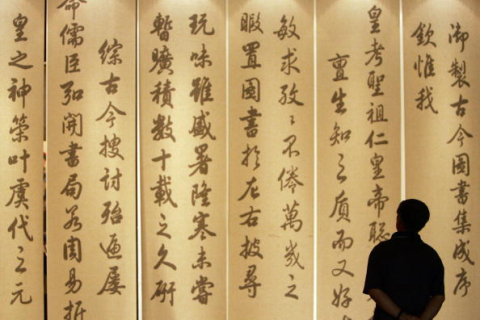 御製古今圖書集成序
欽惟我
皇考聖祖仁皇帝聰
亶生知之質而又好
敏求孜々不倦萬幾之
暇置圖書於左右披尋
玩味雖盛暑隆寒未嘗
暫曠積數十載之久研
綜古今搜討殆遍屢
命儒臣弘開書局若周易折
皇之神策叶虞代之元